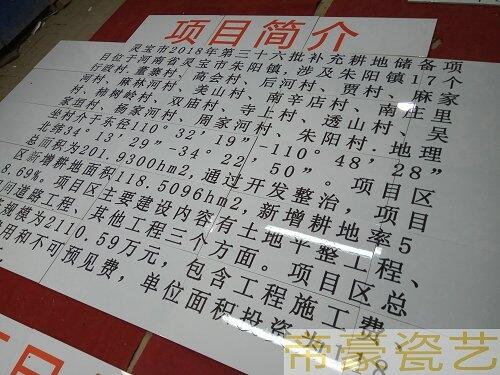 项目简介
灵宝市2018年第三十六批补充耕地储备项
目位于河南省灵宝市朱阳镇,涉及朱阳镇17个
行政村、董寨村、高会村、后河村、贾村、麻家
河村、麻林河村、美山村、南辛店村、南庄里
村、柿树岭村、双庙村、寺上村、透山村、吴
家垣村、杨家河村、周家河村、朱阳村.地理
坐标介于东径110°32'19"-110°48'28"
北纬34°13'29"-34°22'50"。项目区
总面积为201.9300hm2,通过开发整治,项目
区新增耕地面积118.5096hm2,新增耕地率5
8.69%。项目区主要建设内容有土地平整工程、
田间道路工程、其他工程三个方面。项目区总
规模为2110.59万元,包含工程施工费、
用和不可预见费,单位面积投资为1.18
帝豪瓷艺